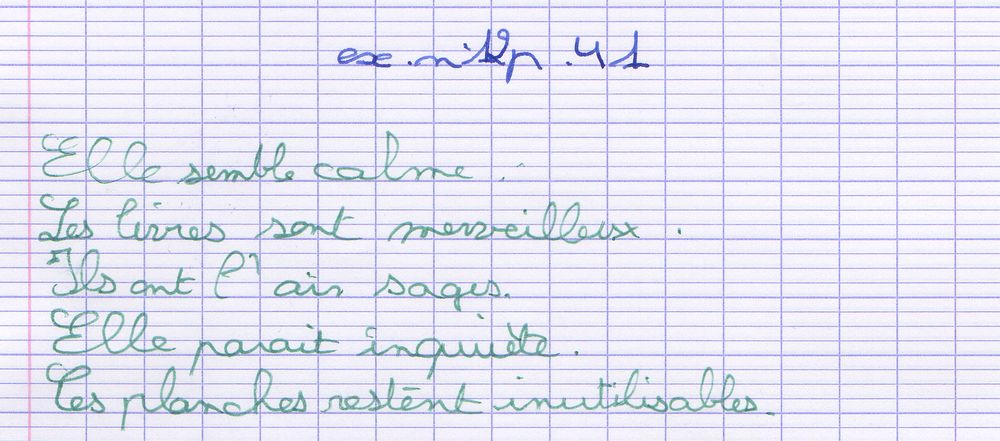 ex. n°12 p. 41
Elle semble calme.
Les livres sont merveilleux.
Ils ont l'air sages.
Elle parait inquiète.
Ces planches restent inutilisables.